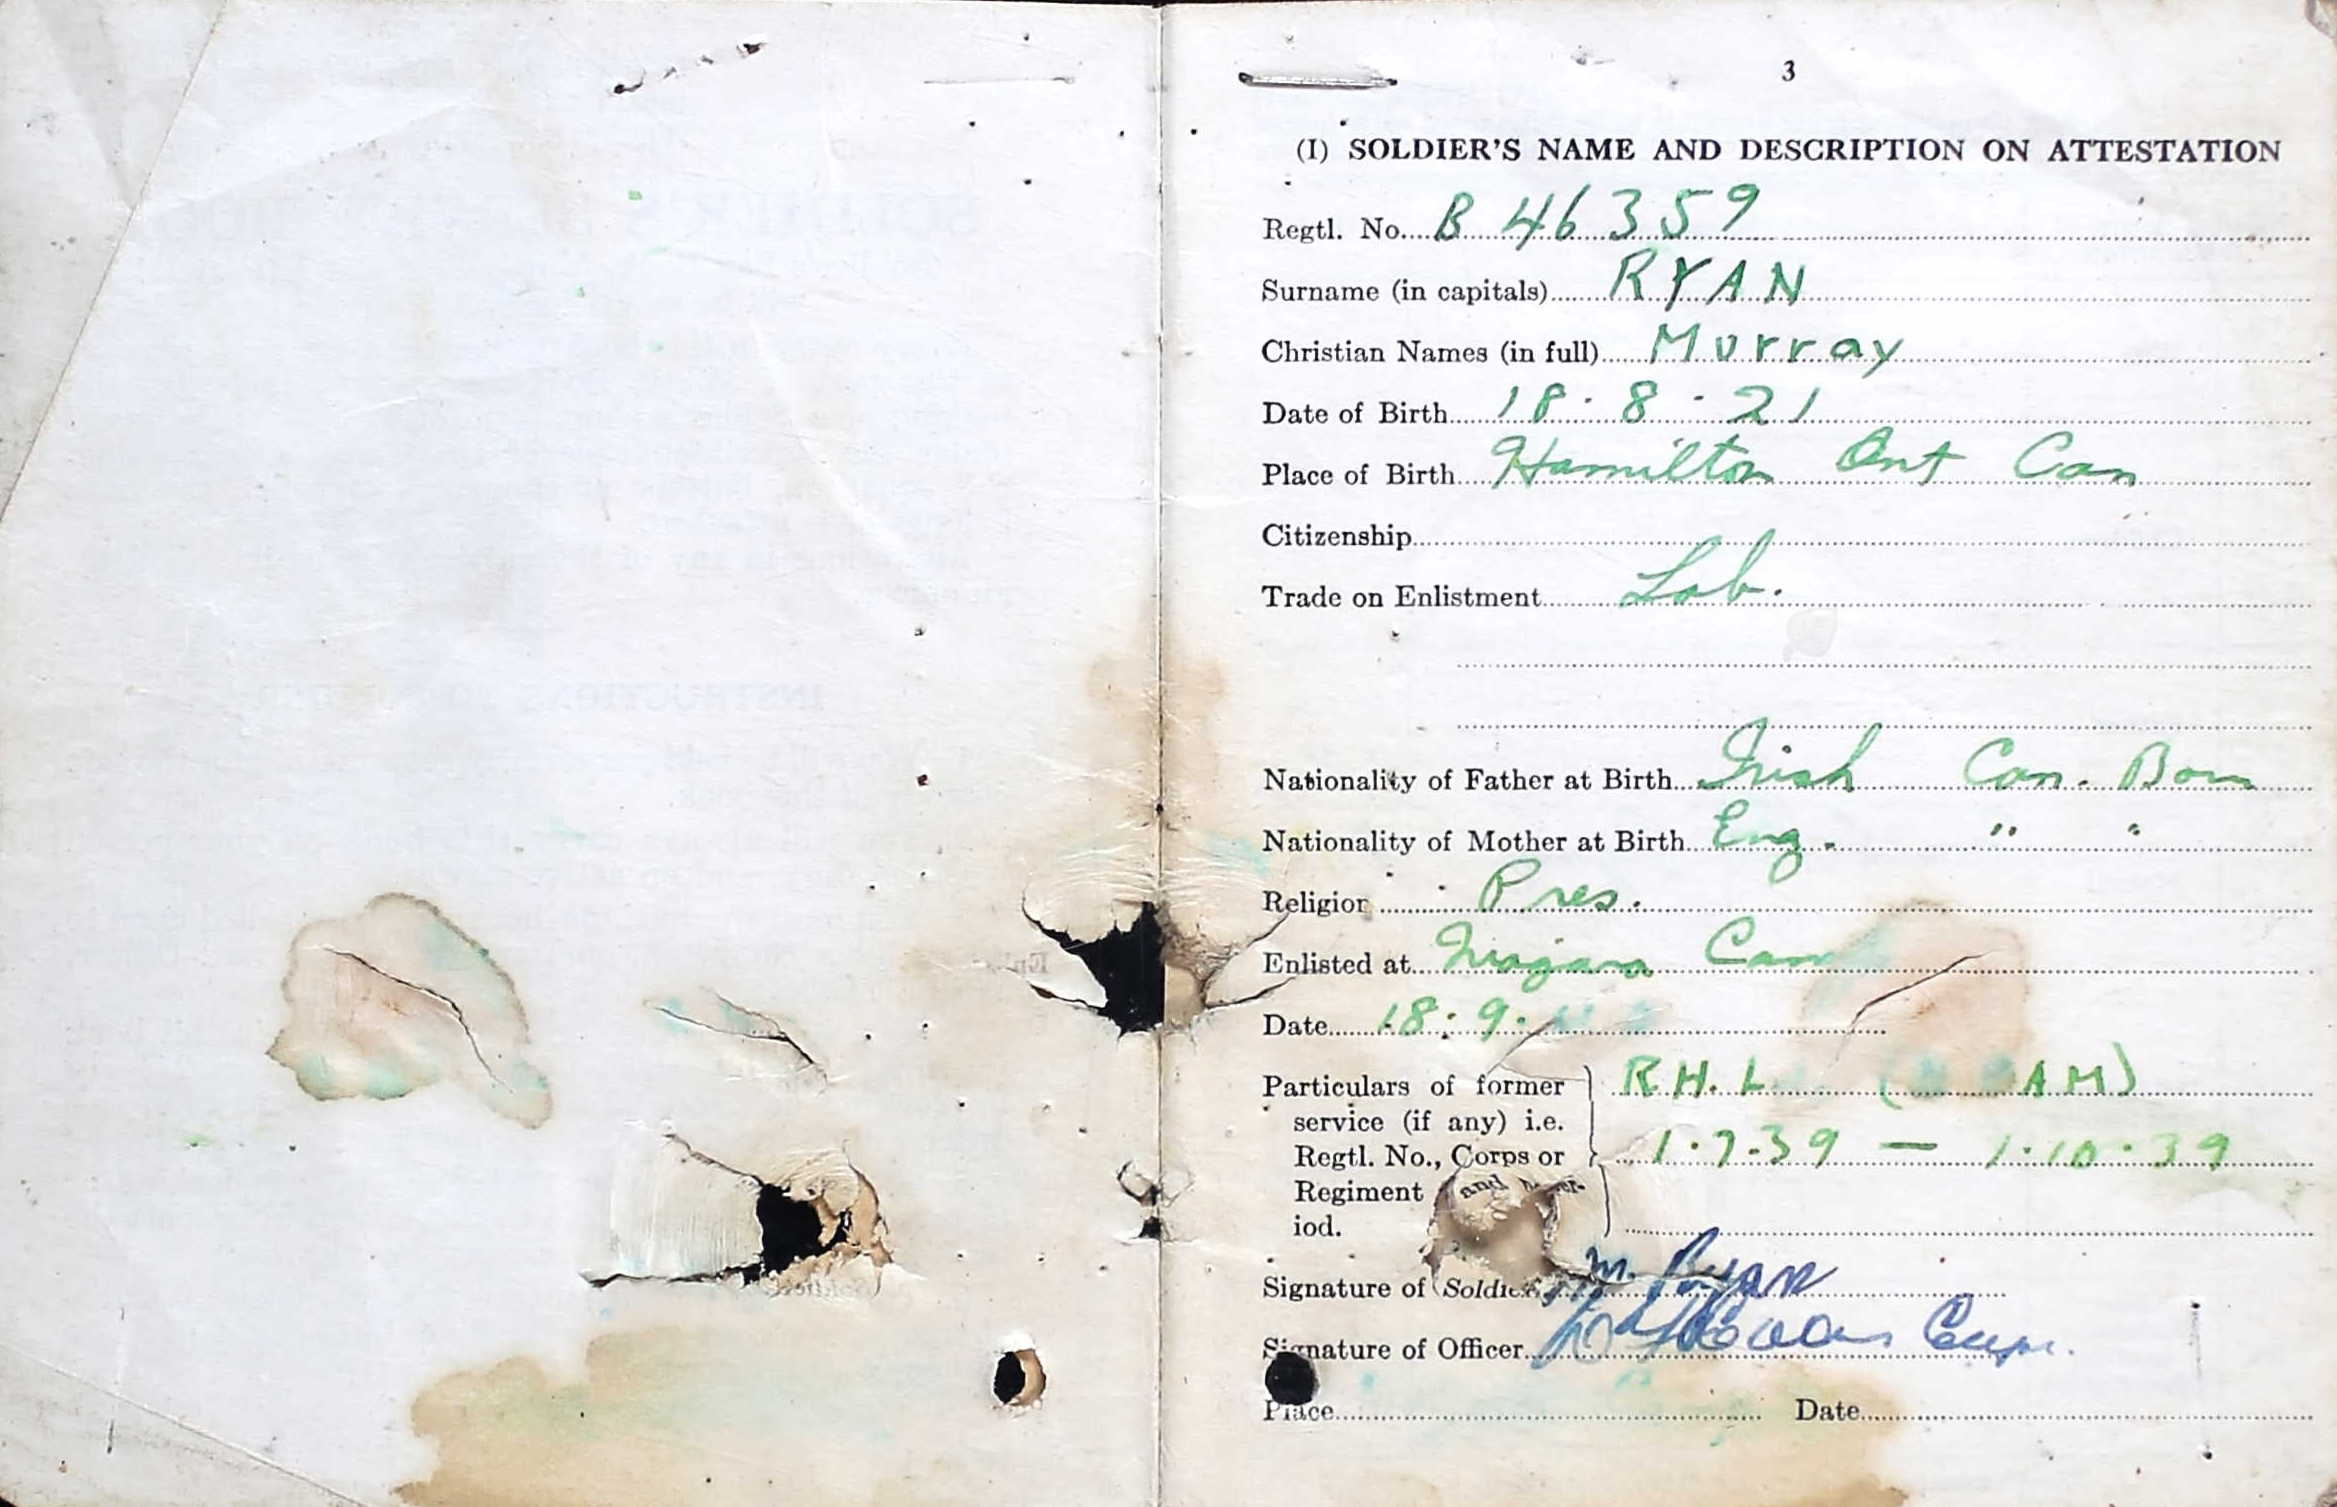 3
(I) SOLDIER'S NAME AND DESCRIPTION ON ATTESTATION
Regtl. No. B 46359
Surname (in capitals) RYAN
Christian Names (in full) Murray
Date of Birth 18 · 8 · 21
Place of Birth Hamilton Ont Can
Citizenship
Trade on Enlistment Lab.
Nationality of Father at Birth Irish Can. Born
Nationality of Mother at Birth Eng. " "
Religion Pres.
Enlisted at Niagara Cam
Date 18 · 9 ·
Particulars of former R.H.L ( AM)
service (if any) i.e.
Regtl. No., Corps or 1·7·39 — 1·10·39
Regiment and
iod.
Signature of (Soldier) M. Ryan
Signature of Officer
Place Date